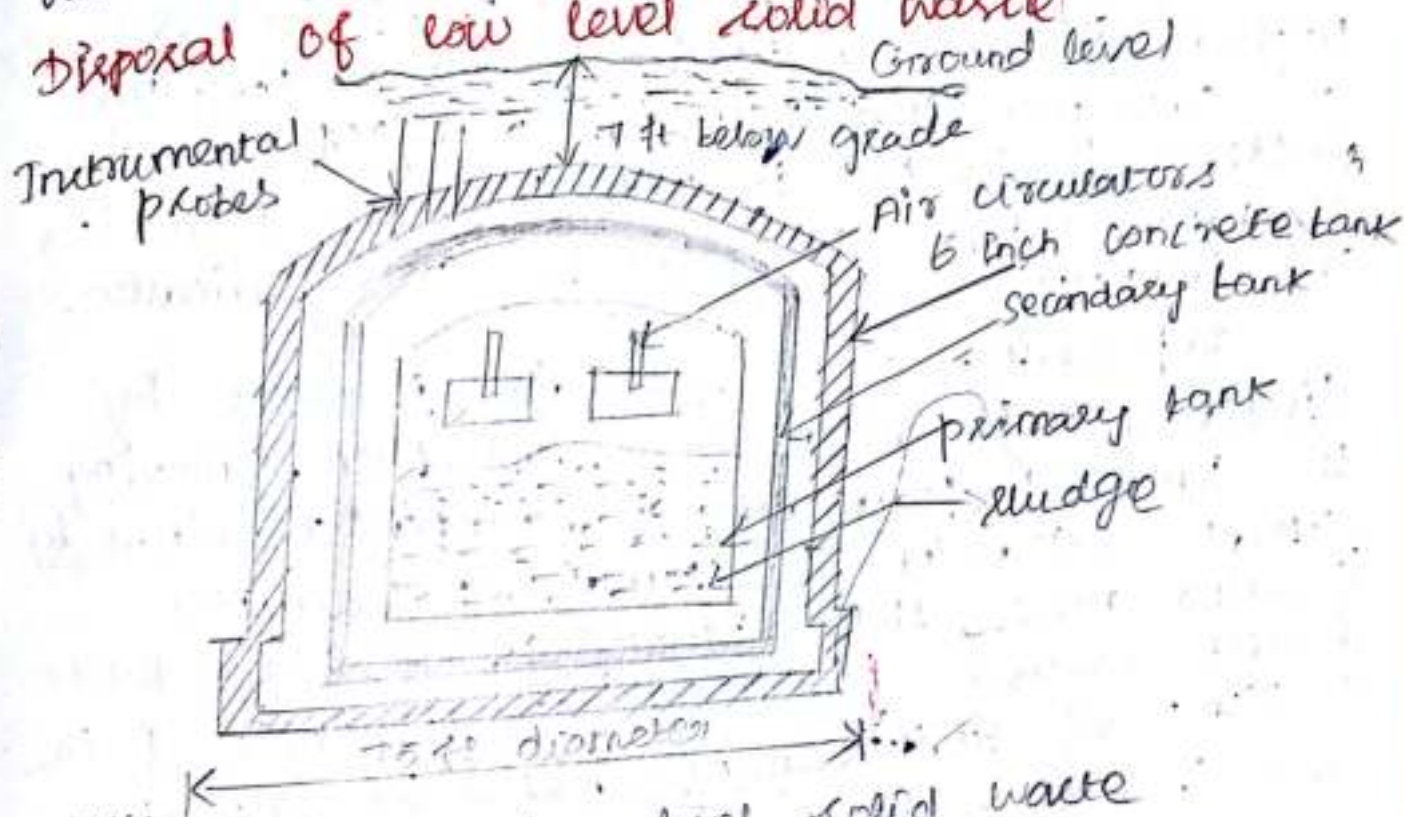 Disposal of low level solid waste
Ground level
Instrumental
probes
7 ft below grade
Air circulators
6 inch concrete tank
secondary tank
primary tank
sludge
75 ft diameter
level solid waste